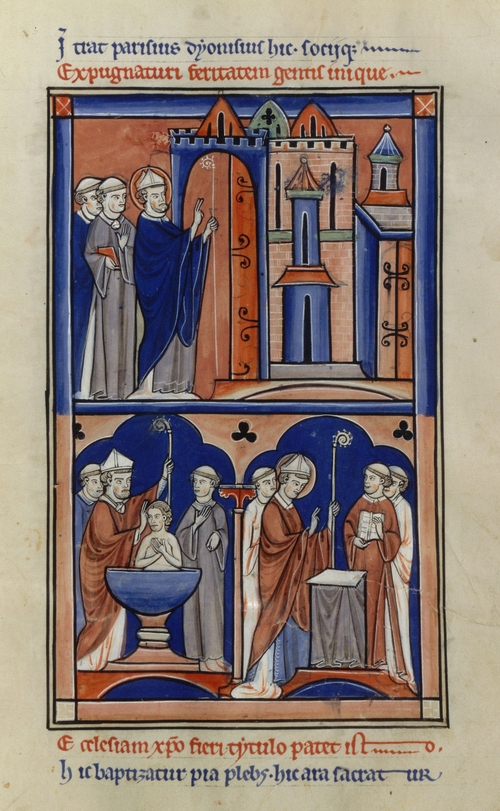 Itrat parisius dyonisius hic sociiq;
Expugnaturi feritatem gentis inique.
E cclesiam xp̄o fieri tytulo patet isto.
h ic baptizatur pia plebs. hic ara sacratur